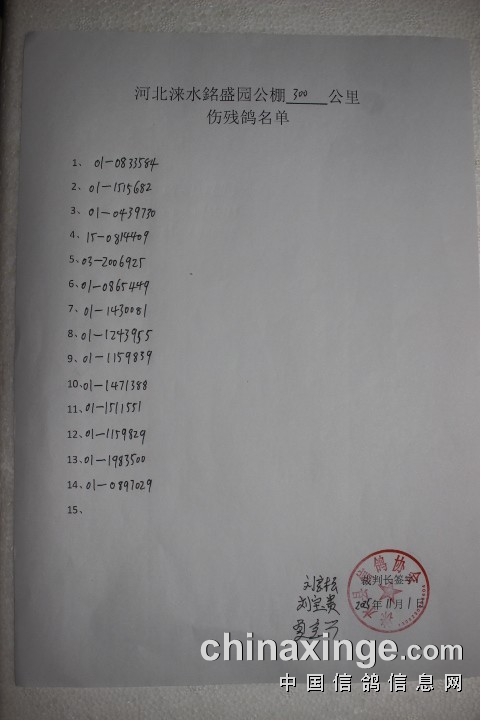 河北涞水銘盛园公棚300公里
伤残鸽名单
1、01-0833584
2、01-1515682
3、01-0439730
4、15-0814409
5、03-2006925
6、01-0865449
7、01-1430081
8、01-1243955
9、01-1159839
10、01-1471388
11、01-1511551
12、01-1159829
13、01-1983500
14、01-0897029
15、
裁判长签字
刘宝贵
年11月1日
chinaxinge.com
中国信鸽信息网